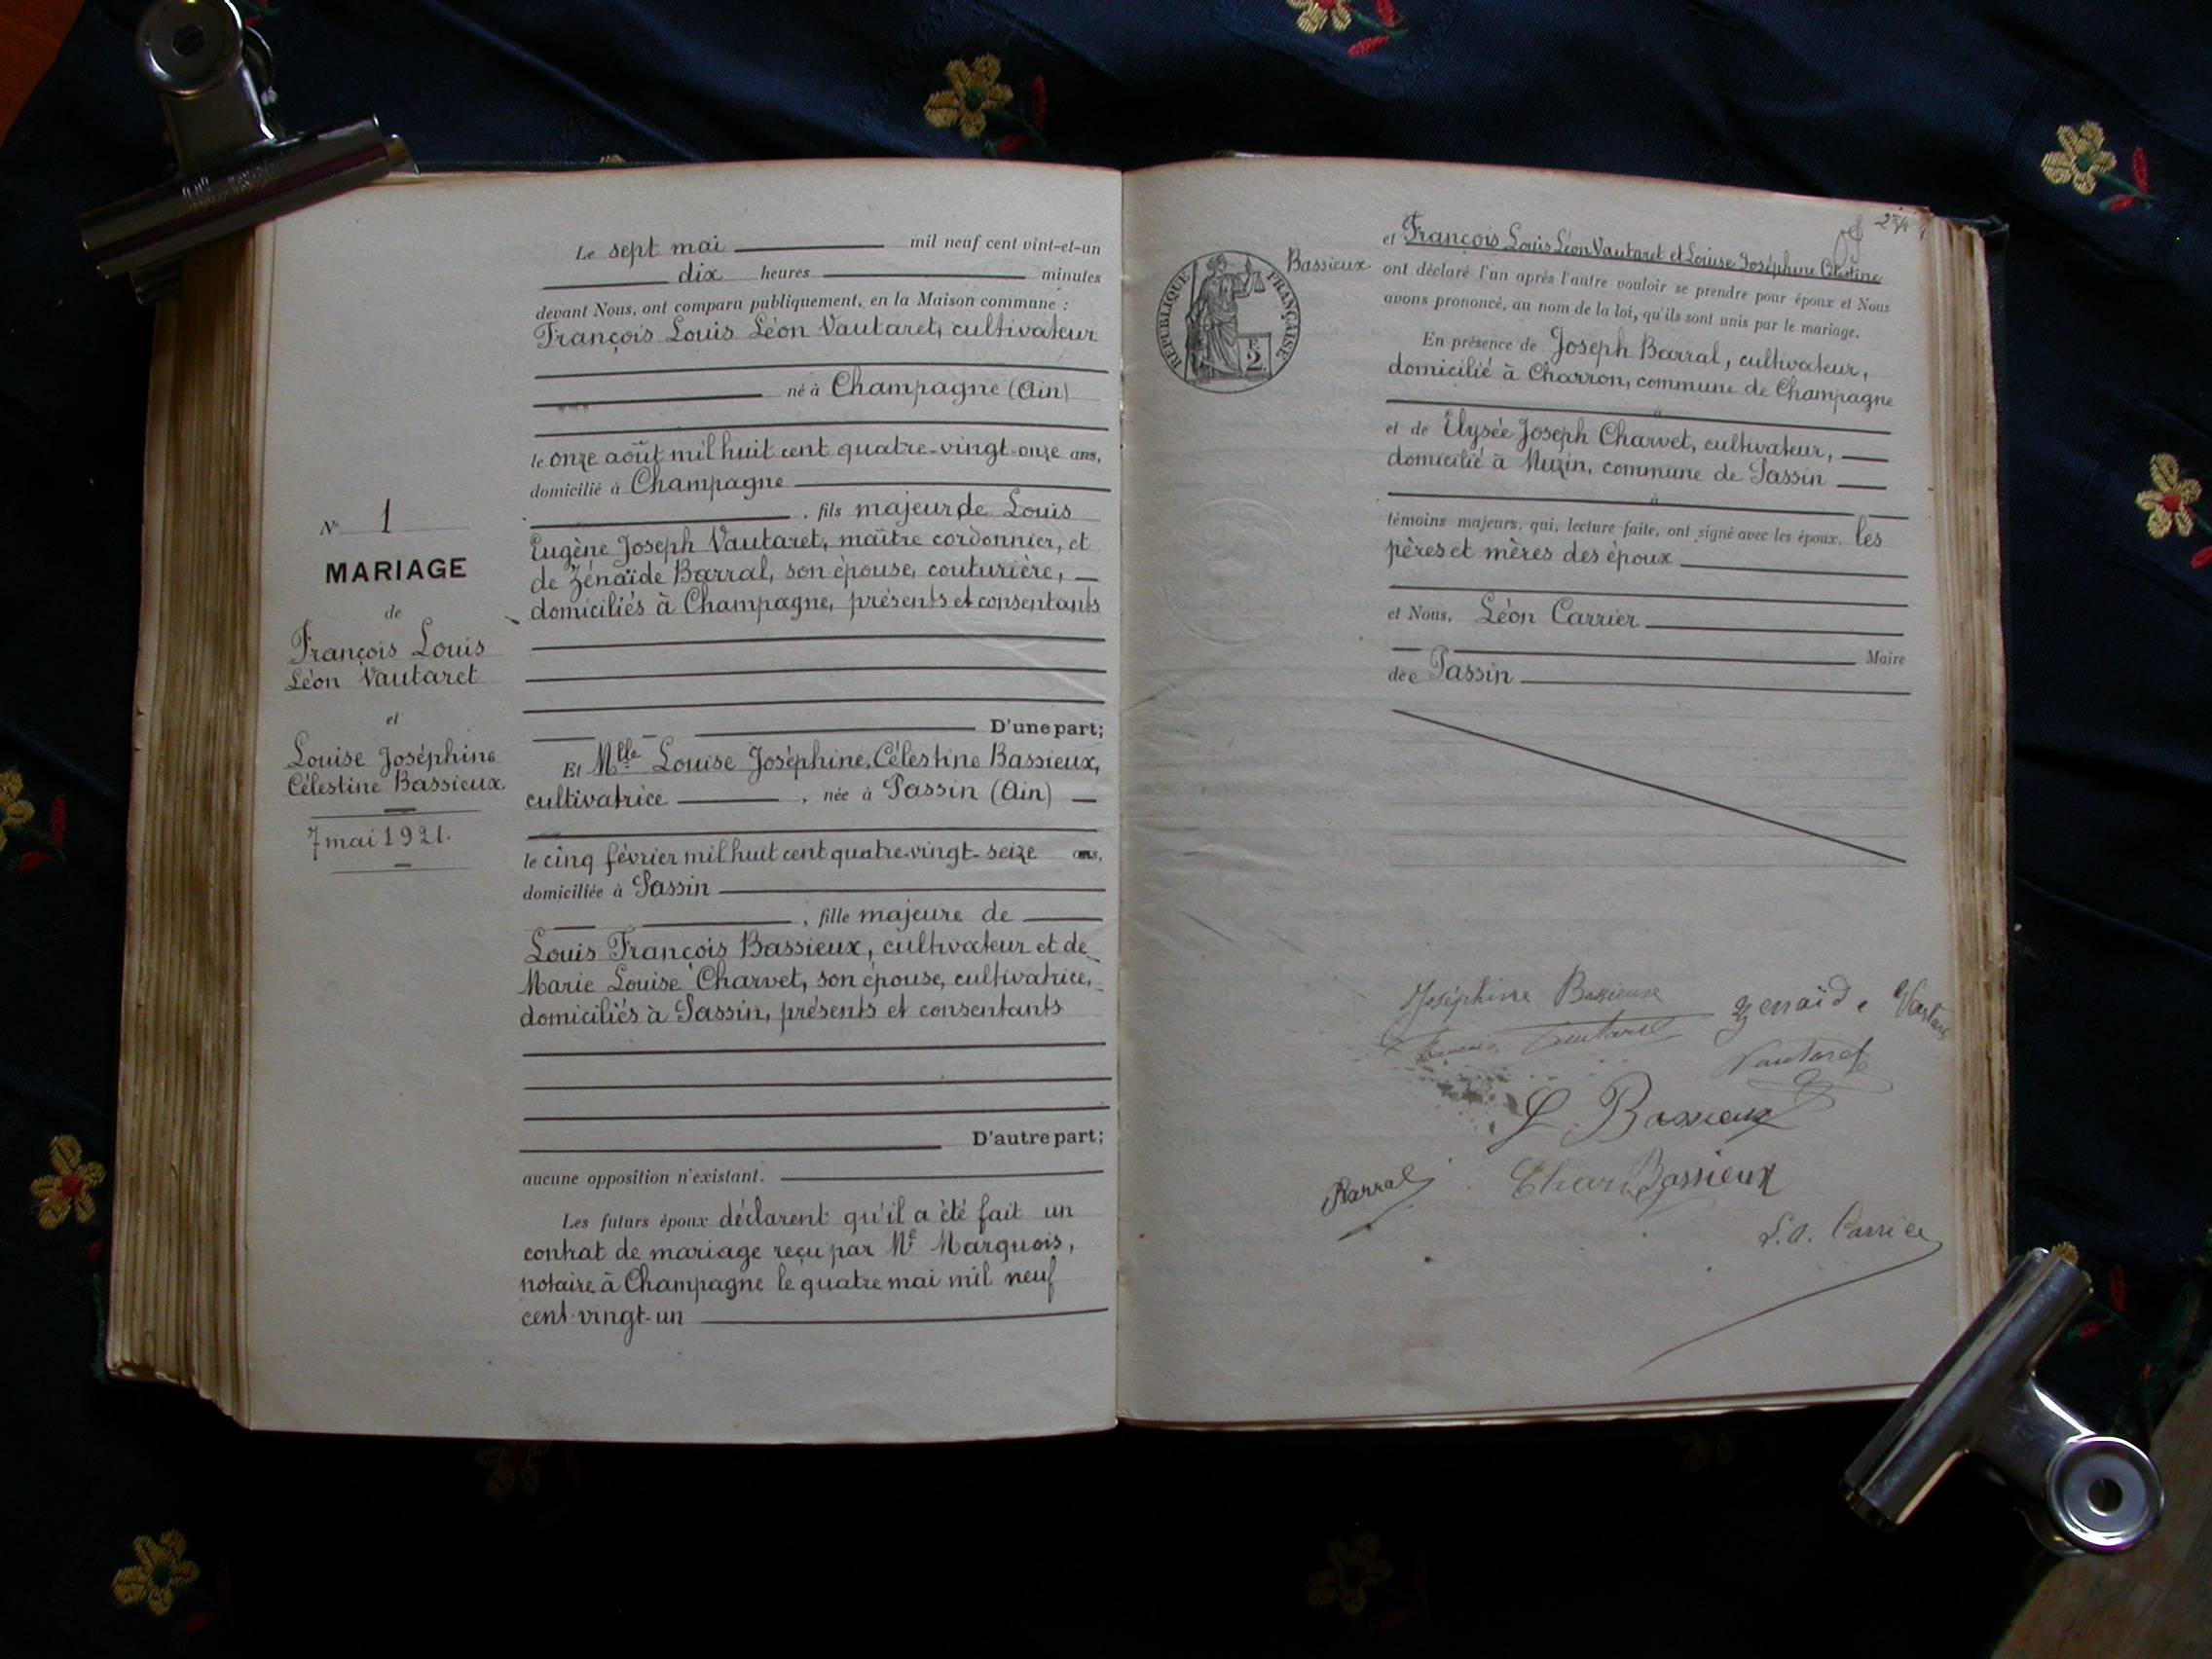 Le sept mai mil neuf cent vint-et-un
dix heures minutes
devant Nous, ont comparu publiquement, en la Maison commune :
François Louis Léon Vautaret, cultivateur
né à Champagne (Ain)
le onze août mil huit cent quatre-vingt-onze ans,
domicilié à Champagne
, fils majeur de Louis
Eugène Joseph Vautaret, maître cordonnier, et
de Zénaïde Barral, son épouse, couturière,
domiciliés à Champagne, présents et consentants
D'une part;
Et Mlle Louise Joséphine, Célestine Bassieux,
cultivatrice , née à Passin (Ain)
le cinq février mil huit cent quatre-vingt-seize ans,
domiciliée à Passin
, fille majeure de
Louis François Bassieux, cultivateur et de
Marie Louise Charvet, son épouse, cultivatrice,
domiciliés à Passin, présents et consentants
D'autre part;
aucune opposition n'existant.
Les futurs époux déclarent qu'il a été fait un
contrat de mariage reçu par Me Marquois,
notaire à Champagne le quatre mai mil neuf
cent-vingt-un
N° 1
MARIAGE
de
François Louis
Léon Vautaret
et
Louise Joséphine
Célestine Bassieux.
7 mai 1921.
et François Louis Léon Vautaret et Louise Joséphine Célestine
Bassieux ont déclaré l'un après l'autre vouloir se prendre pour époux et Nous
avons prononcé, au nom de la loi, qu'ils sont unis par le mariage.
RÉPUBLIQUE FRANÇAISE
F.
2
En présence de Joseph Barral, cultivateur,
domicilié à Charron, commune de Champagne
à
et de Elysée Joseph Charvet, cultivateur,
domicilié à Muzin, commune de Passin
à
témoins majeurs, qui, lecture faite, ont signé avec les époux, les
pères et mères des époux
et Nous, Léon Carrier
Maire
de Passin
Joséphine Bassieux
Zenaïde Vautaret
François Vautaret
Vautaret
L Bassieux
Barral
Bassieux
L. A. Carrier